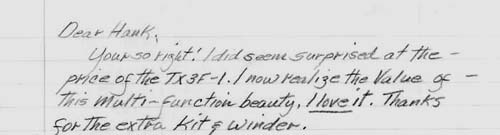 Dear Hank,
Your so right! I did seem surprised at the -
price of the TX3F-1. I now realize the Value of -
this Multi-function beauty, I love it. Thanks
for the extra Kit & winder.